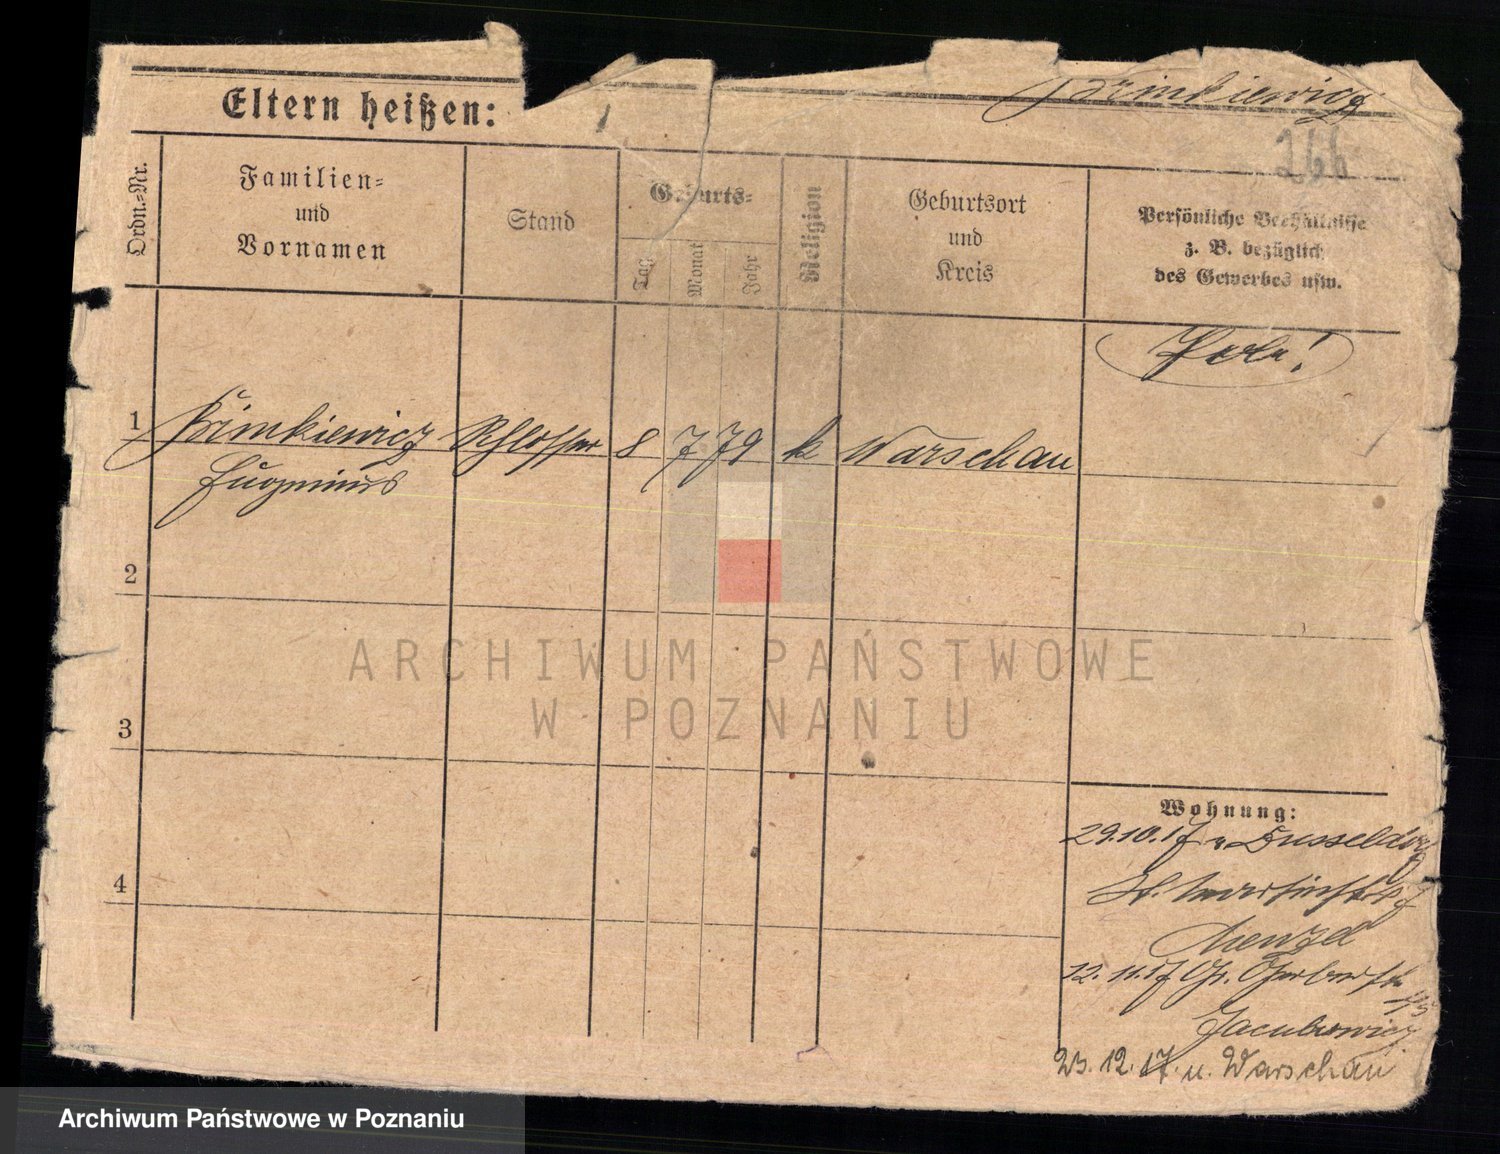 Brimkiewicz
266
Eltern heißen:
Ordn.-Nr.
Familien-
und
Vornamen
Stand
Geburts-
Tag
Monat
Jahr
Religion
Geburtsort
und
Kreis
Persönliche Verhältnisse
z. B. bezüglich
des Gewerbes usw.
1
Brimkiewicz Schlosser 8 7 79 k Warschau
2
3
4
Wohnung:
29.10.17 v Dusseldorf
St. Martinstr.
Menzel
12.11.17 Gr. Gerberstr.
Jacubowicz
23.12.17. n. Warschau
ARCHIWUM PAŃSTWOWE
W POZNANIU
Archiwum Państwowe w Poznaniu